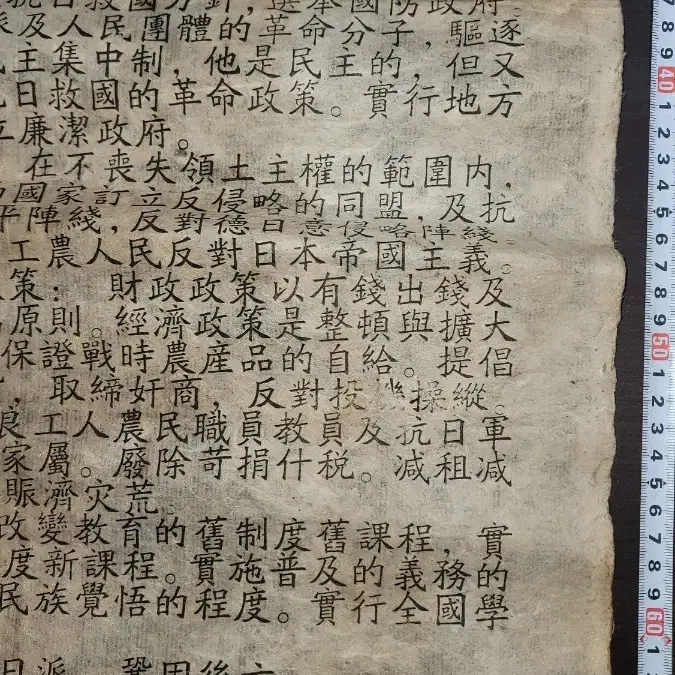 抗日救國方針,選舉國防政府。
派及人民團體的革命分子,驅逐
民主集中制,他是民主的,但又
抗日救國的革命政策。實行地方
立廉潔政府。
在不喪失領土主權的範圍内,
國家訂立反侵略的同盟,及抗
平陣綫,反對德日意侵略陣綫。
工農人民反對日本帝國主義。
策:財政政策以有錢出錢及
原則。經濟政策是整頓與擴大
保證戰時農産品的自給。提倡
,取締奸商,反對投機操縱。
良工人農民職員教員及抗日軍
家屬。廢除苛捐什税。减租减
賑濟灾荒
改變教育的舊制度舊課程,實
度新課程。實施普及的義務的
民族覺悟的程度。實行全國學
日派,鞏固後方
7 8 9 40 1 2 3 4 5 6 7 8 9 50 1 2 3 4 5 6 7 8 9 60 1